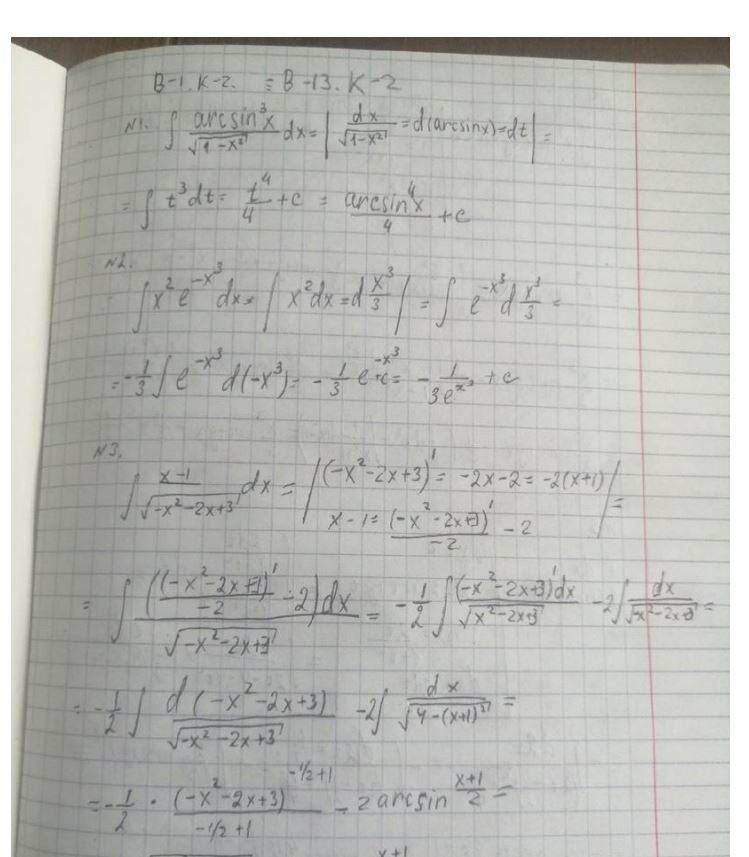 B-1. K-2. = B-13. K-2
N1. ∫ arcsin³x / √(1-x²) dx = | dx / √(1-x²) = d(arcsinx) = dt | =
= ∫ t³ dt = t⁴/4 + c = arcsin⁴x / 4 + c
N2.
∫ x² e^(-x³) dx = | x² dx = d x³/3 | = ∫ e^(-x³) d x³/3 =
= -1/3 ∫ e^(-x³) d(-x³) = -1/3 e^(-x³) + c = - 1/(3e^(x³)) + c
N3.
∫ (x-1) / √(-x²-2x+3) dx = | (-x²-2x+3)' = -2x-2 = -2(x+1)
x-1 = (-x²-2x+3)' / -2 - 2 | =
= ∫ ((-x²-2x+3)' / -2 - 2) dx / √(-x²-2x+3) = -1/2 ∫ (-x²-2x+3)' dx / √(-x²-2x+3) - 2 ∫ dx / √(-x²-2x+3) =
= -1/2 ∫ d(-x²-2x+3) / √(-x²-2x+3) - 2 ∫ dx / √(4-(x+1)²) =
= -1/2 · (-x²-2x+3)^(-1/2+1) / (-1/2+1) - 2 arcsin (x+1)/2 =
x+1